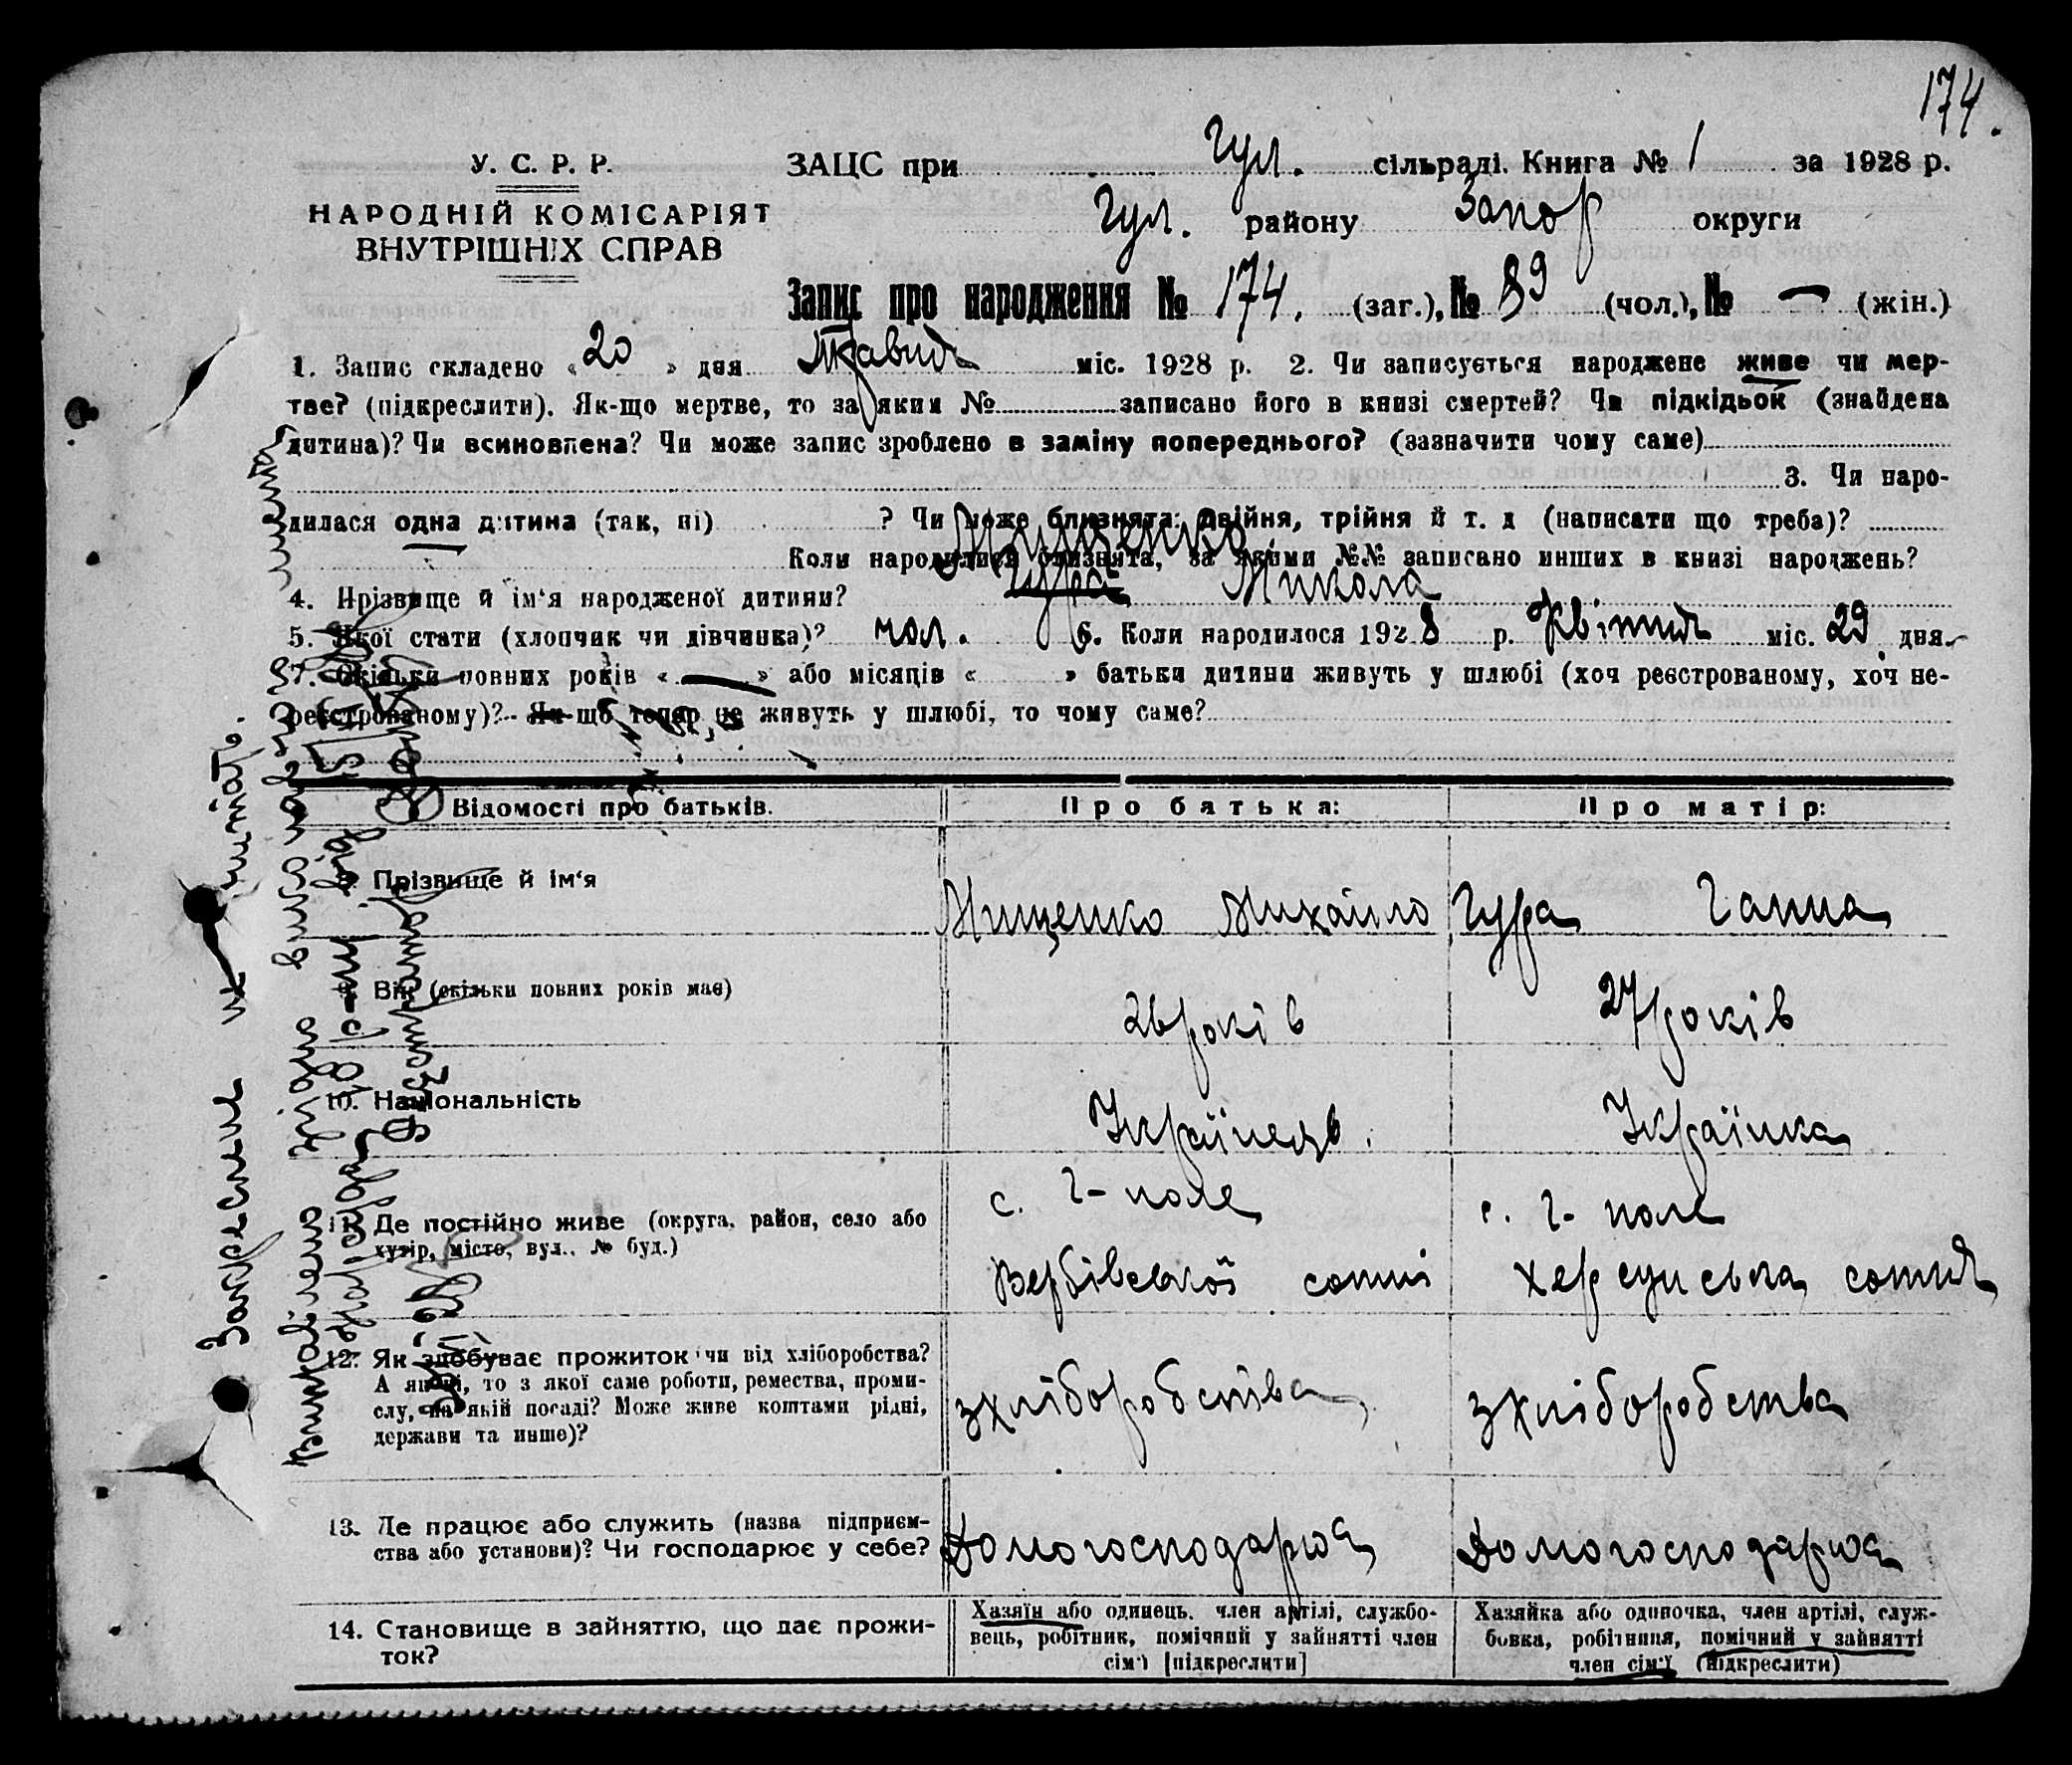 174.
У. С. Р. Р.
НАРОДНІЙ КОМІСАРІЯТ
ВНУТРІШНІХ СПРАВ
ЗАЦС при Гул. сільраді. Книга № 1 за 1928 р.
Гул. району Запор округи
Запис про народження № 174. (заг.), № 89 (чол.), № — (жін.)
1. Запис складено «20» дня Травня міс. 1928 р. 2. Чи записується народжене живе чи мер-
тве? (підкреслити). Як-що мертве, то за яким № записано його в книзі смертей? Чи підкідьок (знайдена
дитина)? Чи всиновлена? Чи може запис зроблено в заміну попереднього? (зазначити чому саме)
3. Чи наро-
дилася одна дитина (так, ні) ? Чи може близнята: двійня, трійня й т. д (написати що треба)?
Коли народилися близнята, за якими №№ записано инших в книзі народжень?
Мищенко
4. Прізвище й ім‘я народженої дитини? Гура Микола
5. Якої стати (хлопчик чи дівчинка)? чол. 6. Коли народилося 1928 р. Квітня міс. 29 дня.
7. Скільки повних років « — » або місяців « » батьки дитини живуть у шлюбі (хоч реєстрованому, хоч не-
реєстрованому)? Як-що тепер не живуть у шлюбі, то чому саме?
Відомості про батьків. Про батька: Про матір:
8. Прізвище й ім‘я Мищенко Михайло Гура Ганна
9. Вік (скільки повних років має) 26 років 27 років
10. Національність Українець. Українка
11. Де постійно живе (округа, район, село або
хутір, місто, вул., № буд.)
с. Г- поле
Вербівської сотні
с. Г- поле
Херсунська сотня
12. Як здобуває прожиток чи від хліборобства?
А як ні, то з якої саме роботи, ремества, проми-
слу, на якій посаді? Може живе коштами рідні,
держави та инше)?
з хліборобства
з хліборобства
13. Де працює або служить (назва підприєм-
ства або установи)? Чи господарює у себе?
Домогосподарює
Домогосподарює
14. Становище в зайняттю, що дає прожи-
ток?
Хазяїн або одинець, член артілі, службо-
вець, робітник, помічний у зайнятті член
сім‘ї [підкреслити]
Хазяйка або одиночка, член артілі, служ-
бовка, робітниця, помічний у зайнятті
член сім‘ї (підкреслити)
Закреслене не читать.
Виправлено згідно